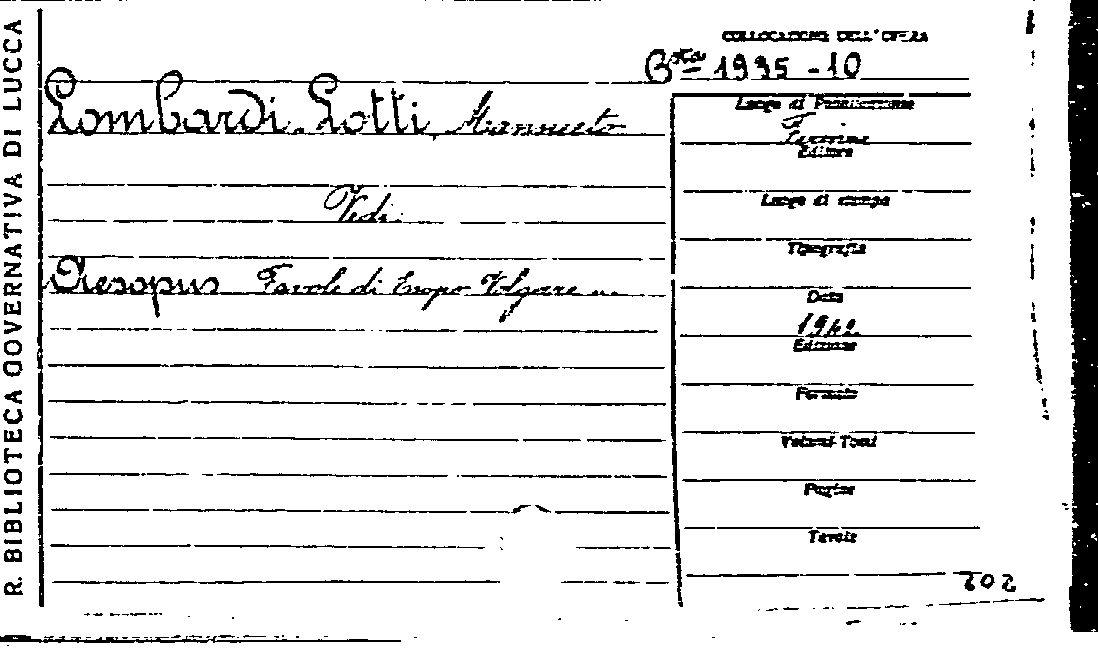 R. BIBLIOTECA GOVERNATIVA DI LUCCA
COLLOCAZIONE DELL'OPERA
Bsta 1935-10
Lombardi Lotti, Mansueto
Luogo di Pubblicazione
Editore
Vedi
Luogo di stampa
Tipografia
Aesopus Favole di Esopo Volgare ...
Data
1942
Edizione
Formato
Volumi-Tomi
Pagine
Tavole
202